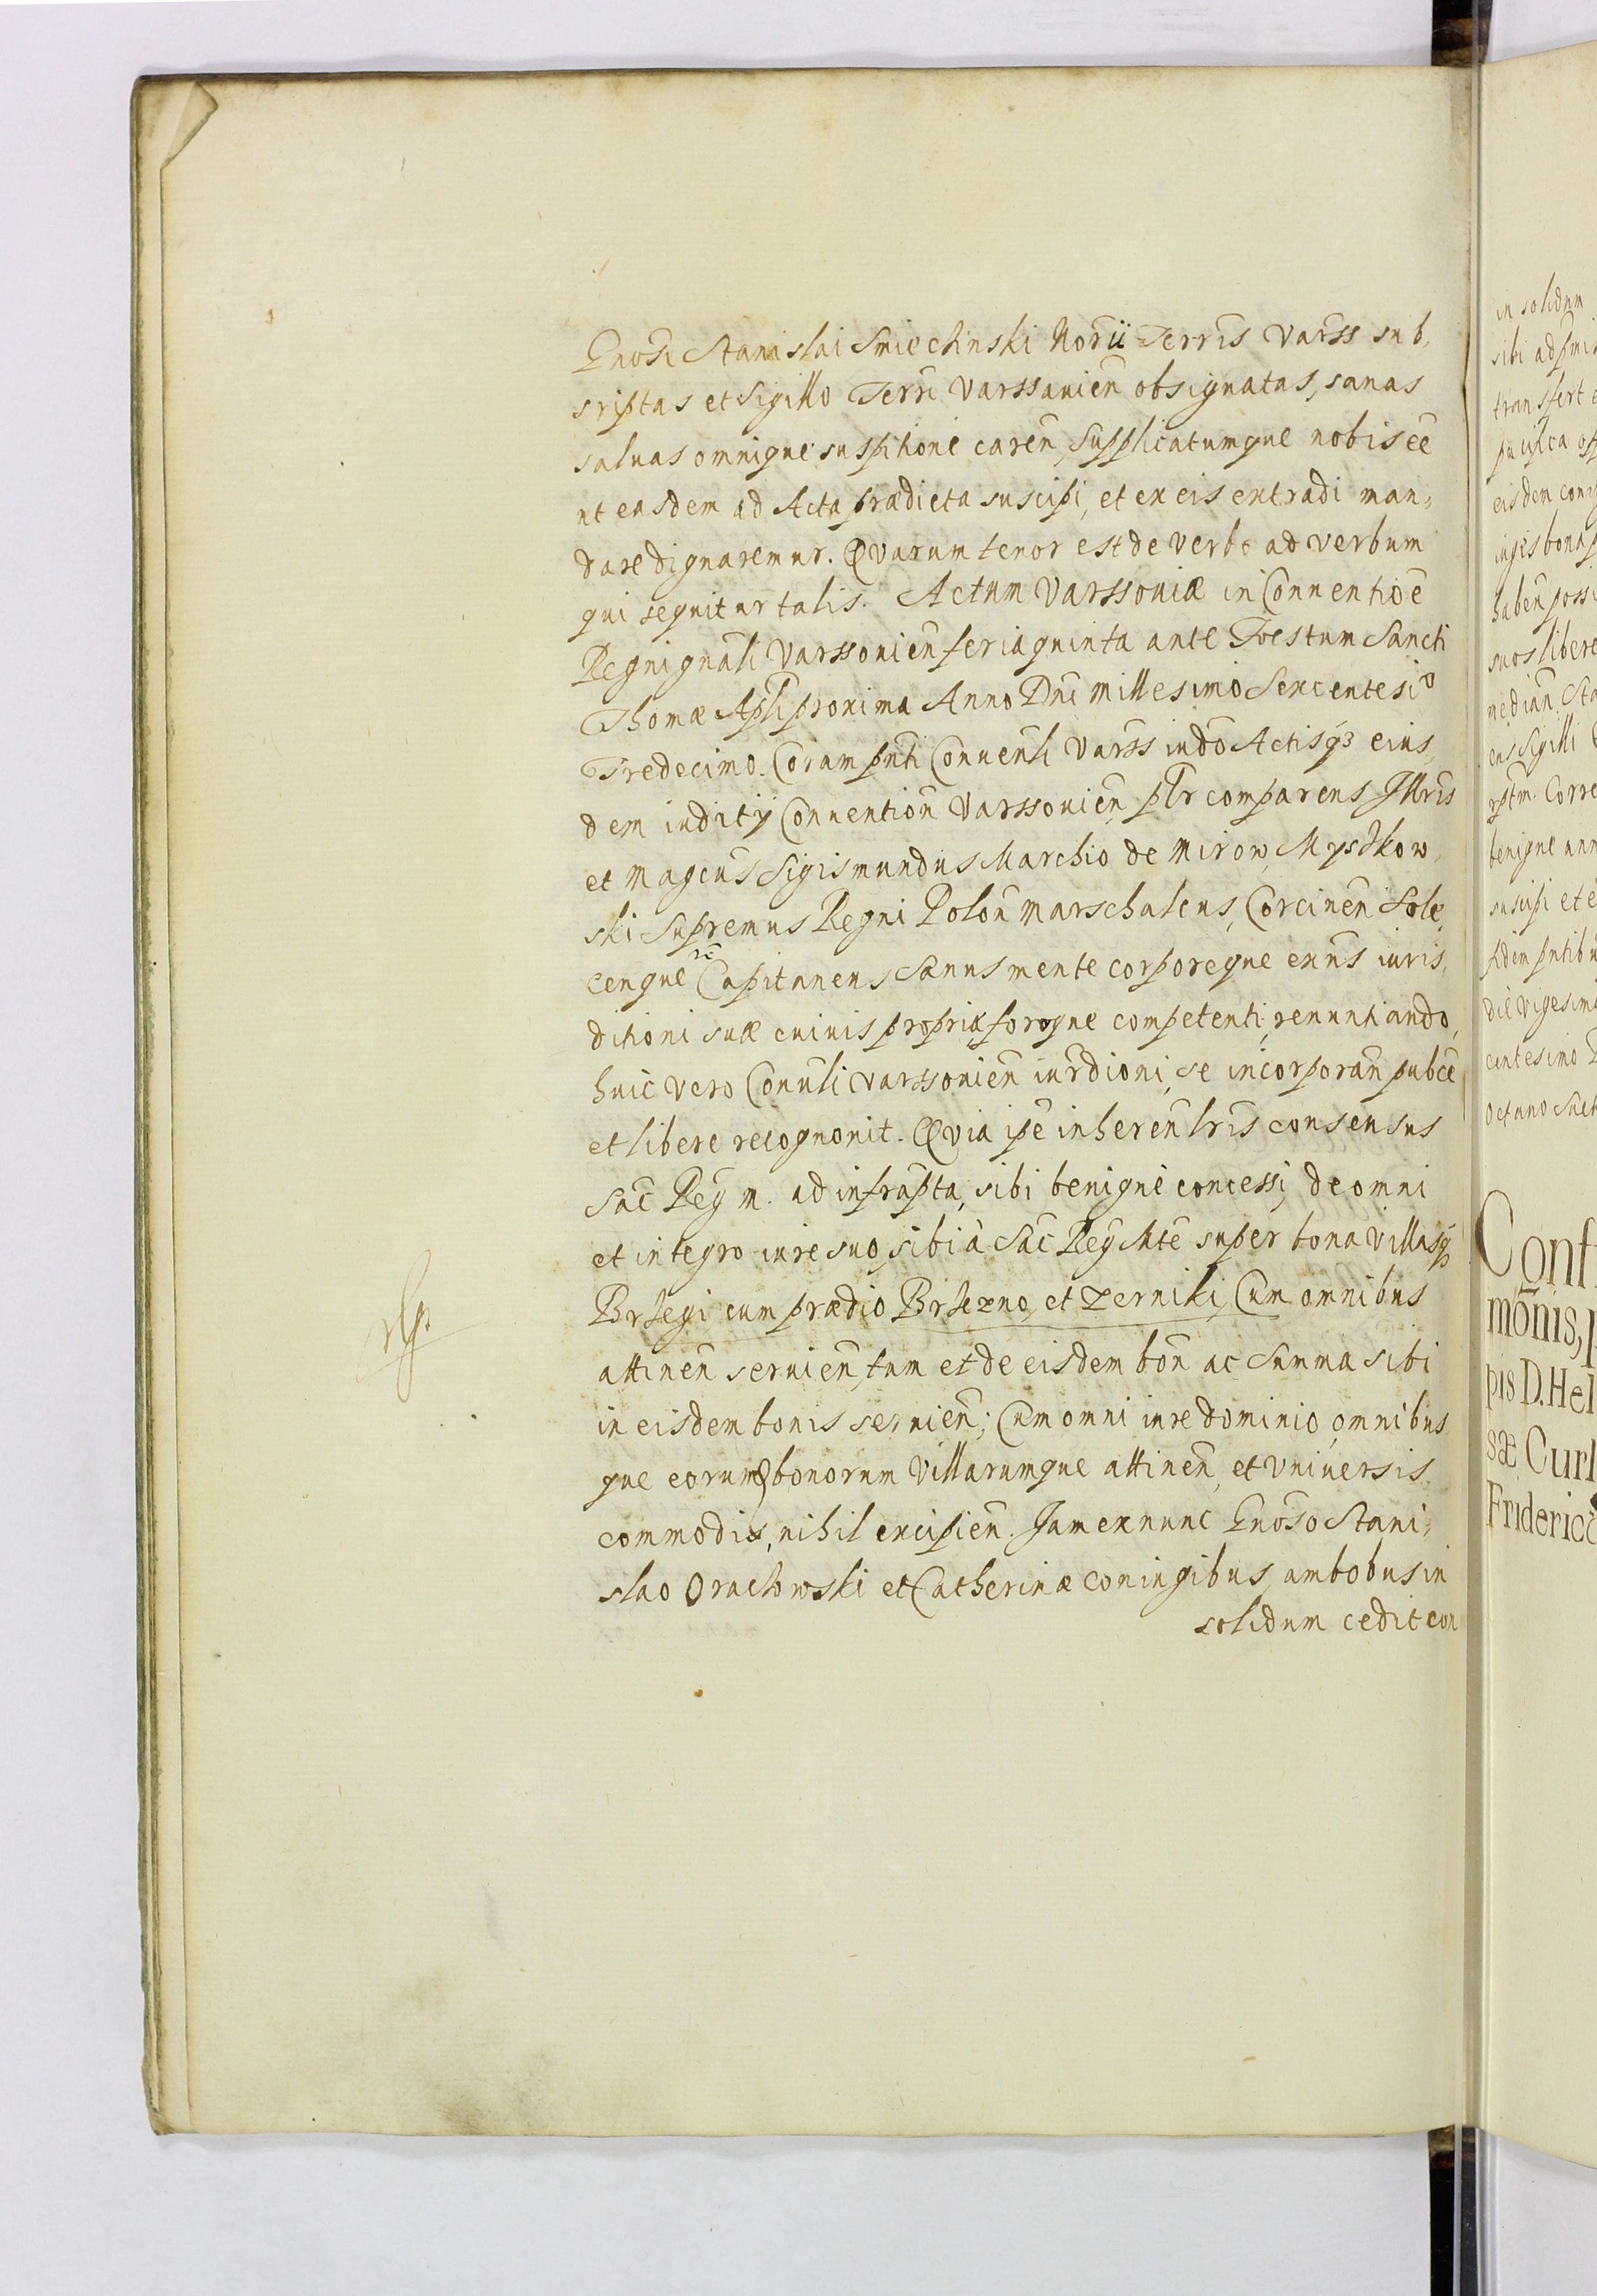 Gnosi Stanislai Smiechinski Norii Terris Varss sub,
sriptas et Sigillo Terri Varssauien obsignatas, sanas
saluas omnique suspitione caren, Supplicatumque nobis eē
ut easdem ad Acta prædicta suscipi, et ex eis extradi man,
dare dignaremur. Quarum tenor est de verbo ad verbum
qui sequitur talis. Actum Varssouiæ in Conuentioē
Regni gnāli Varssouien feria quinta ante Foestum Sancti
Thomæ Apli proxima Anno Dni Millesimo Sexcentesio
Tredecimo. Coram pnti Conuenli Varss iudō Actisq3 eius,
dem iudicÿ Conuention Varssouien pŀr comparens Jllris
et Magcus Sigismundus Marchio de Mirow Myszkow,
ski Supremus Regni Polon Marschalcus, Corcinen Sole,
cenque ꝛc Capitaneus Sanus mente corporeque exñs iuris,
ditioni suæ cuiuis propriæ foroque competenti, renuntiando,
huic vero Conuli varssouien iurdioni se incorporan pubcē
et libere recognouit. Quia ipē inheren lris consensus
Sac Reg M. ad infrapta, sibi benigne concessi, de omni
et integro iure suo, sibi à Sac Reg Mte super bona Villasq3
Brsegi cum prædio Brsezno, et Zerniki, Cum omnibus
attinen seruien, tum et de eisdem bon ac Summa sibi
in eisdem bonis seruien; Cum omni iure dominio, omnibus
que eorum bonorum Villarumque attinen, et vniuersis
commodis, nihil excipien. Jam ex nunc Gnoso Stani,
slao Orachowski et Catherinæ coniugibus ambobus in
solidum cedit con
in solidum
transfert
eisdem
haben possi
suos libere
median Sta
Sigilli
Corre
benigne ann
suscipi et
die vigesimo
centesimo
octauo
Conf
mōnis,
pis D. Hel
sæ Curl
Friderico